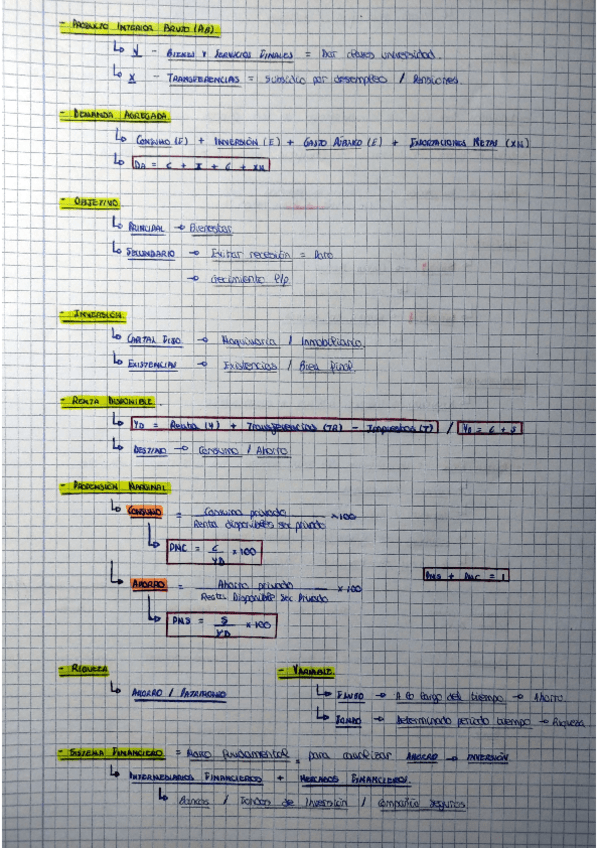 - PRODUCTO INTERIOR BRUTO (PIB).
↳ V - BIENES Y SERVICIOS FINALES = Dar clases universidad.
↳ X - TRANSFERENCIAS = Subsidio por desempleo / Pensiones.
- DEMANDA AGREGADA
↳ CONSUMO (E) + INVERSIÓN (E) + GASTO PÚBLICO (E) + EXPORTACIONES NETAS (XN)
↳ DA = C + I + G + XN
- OBJETIVO
↳ PRINCIPAL → Bienestar
↳ SECUNDARIO → Evitar recesión = Paro
→ crecimiento l/p
- INVERSIÓN
↳ CAPITAL FIJO → Maquinaria / Inmobiliaria
↳ EXISTENCIAS → Existencias / Bien final
- RENTA DISPONIBLE
↳ YD = Renta (Y) + Transferencias (TR) - Impuestos (T) / YD = C + S
↳ DESTINO → Consumo / Ahorro
- PROPENSIÓN MARGINAL
↳ CONSUMO = Consumo privado / Renta disponible sec privado × 100
↳ PMC = C / YD × 100
↳ AHORRO = Ahorro privado / Renta Disponible Sec Privado × 100
PMS + PMC = 1
↳ PMS = S / YD × 100
- RIQUEZA
↳ AHORRO / PATRIMONIO
- VARIABLE
↳ FLUJO → A lo largo del tiempo → Ahorro.
↳ FONDO → Determinado periodo tiempo → Riqueza.
- SISTEMA FINANCIERO = fundamental, para canalizar AHORRO → INVERSIÓN
↳ INTERMEDIARIOS FINANCIEROS + MERCADOS FINANCIEROS.
↳ Bancos / Fondos de Inversión / compañía seguros